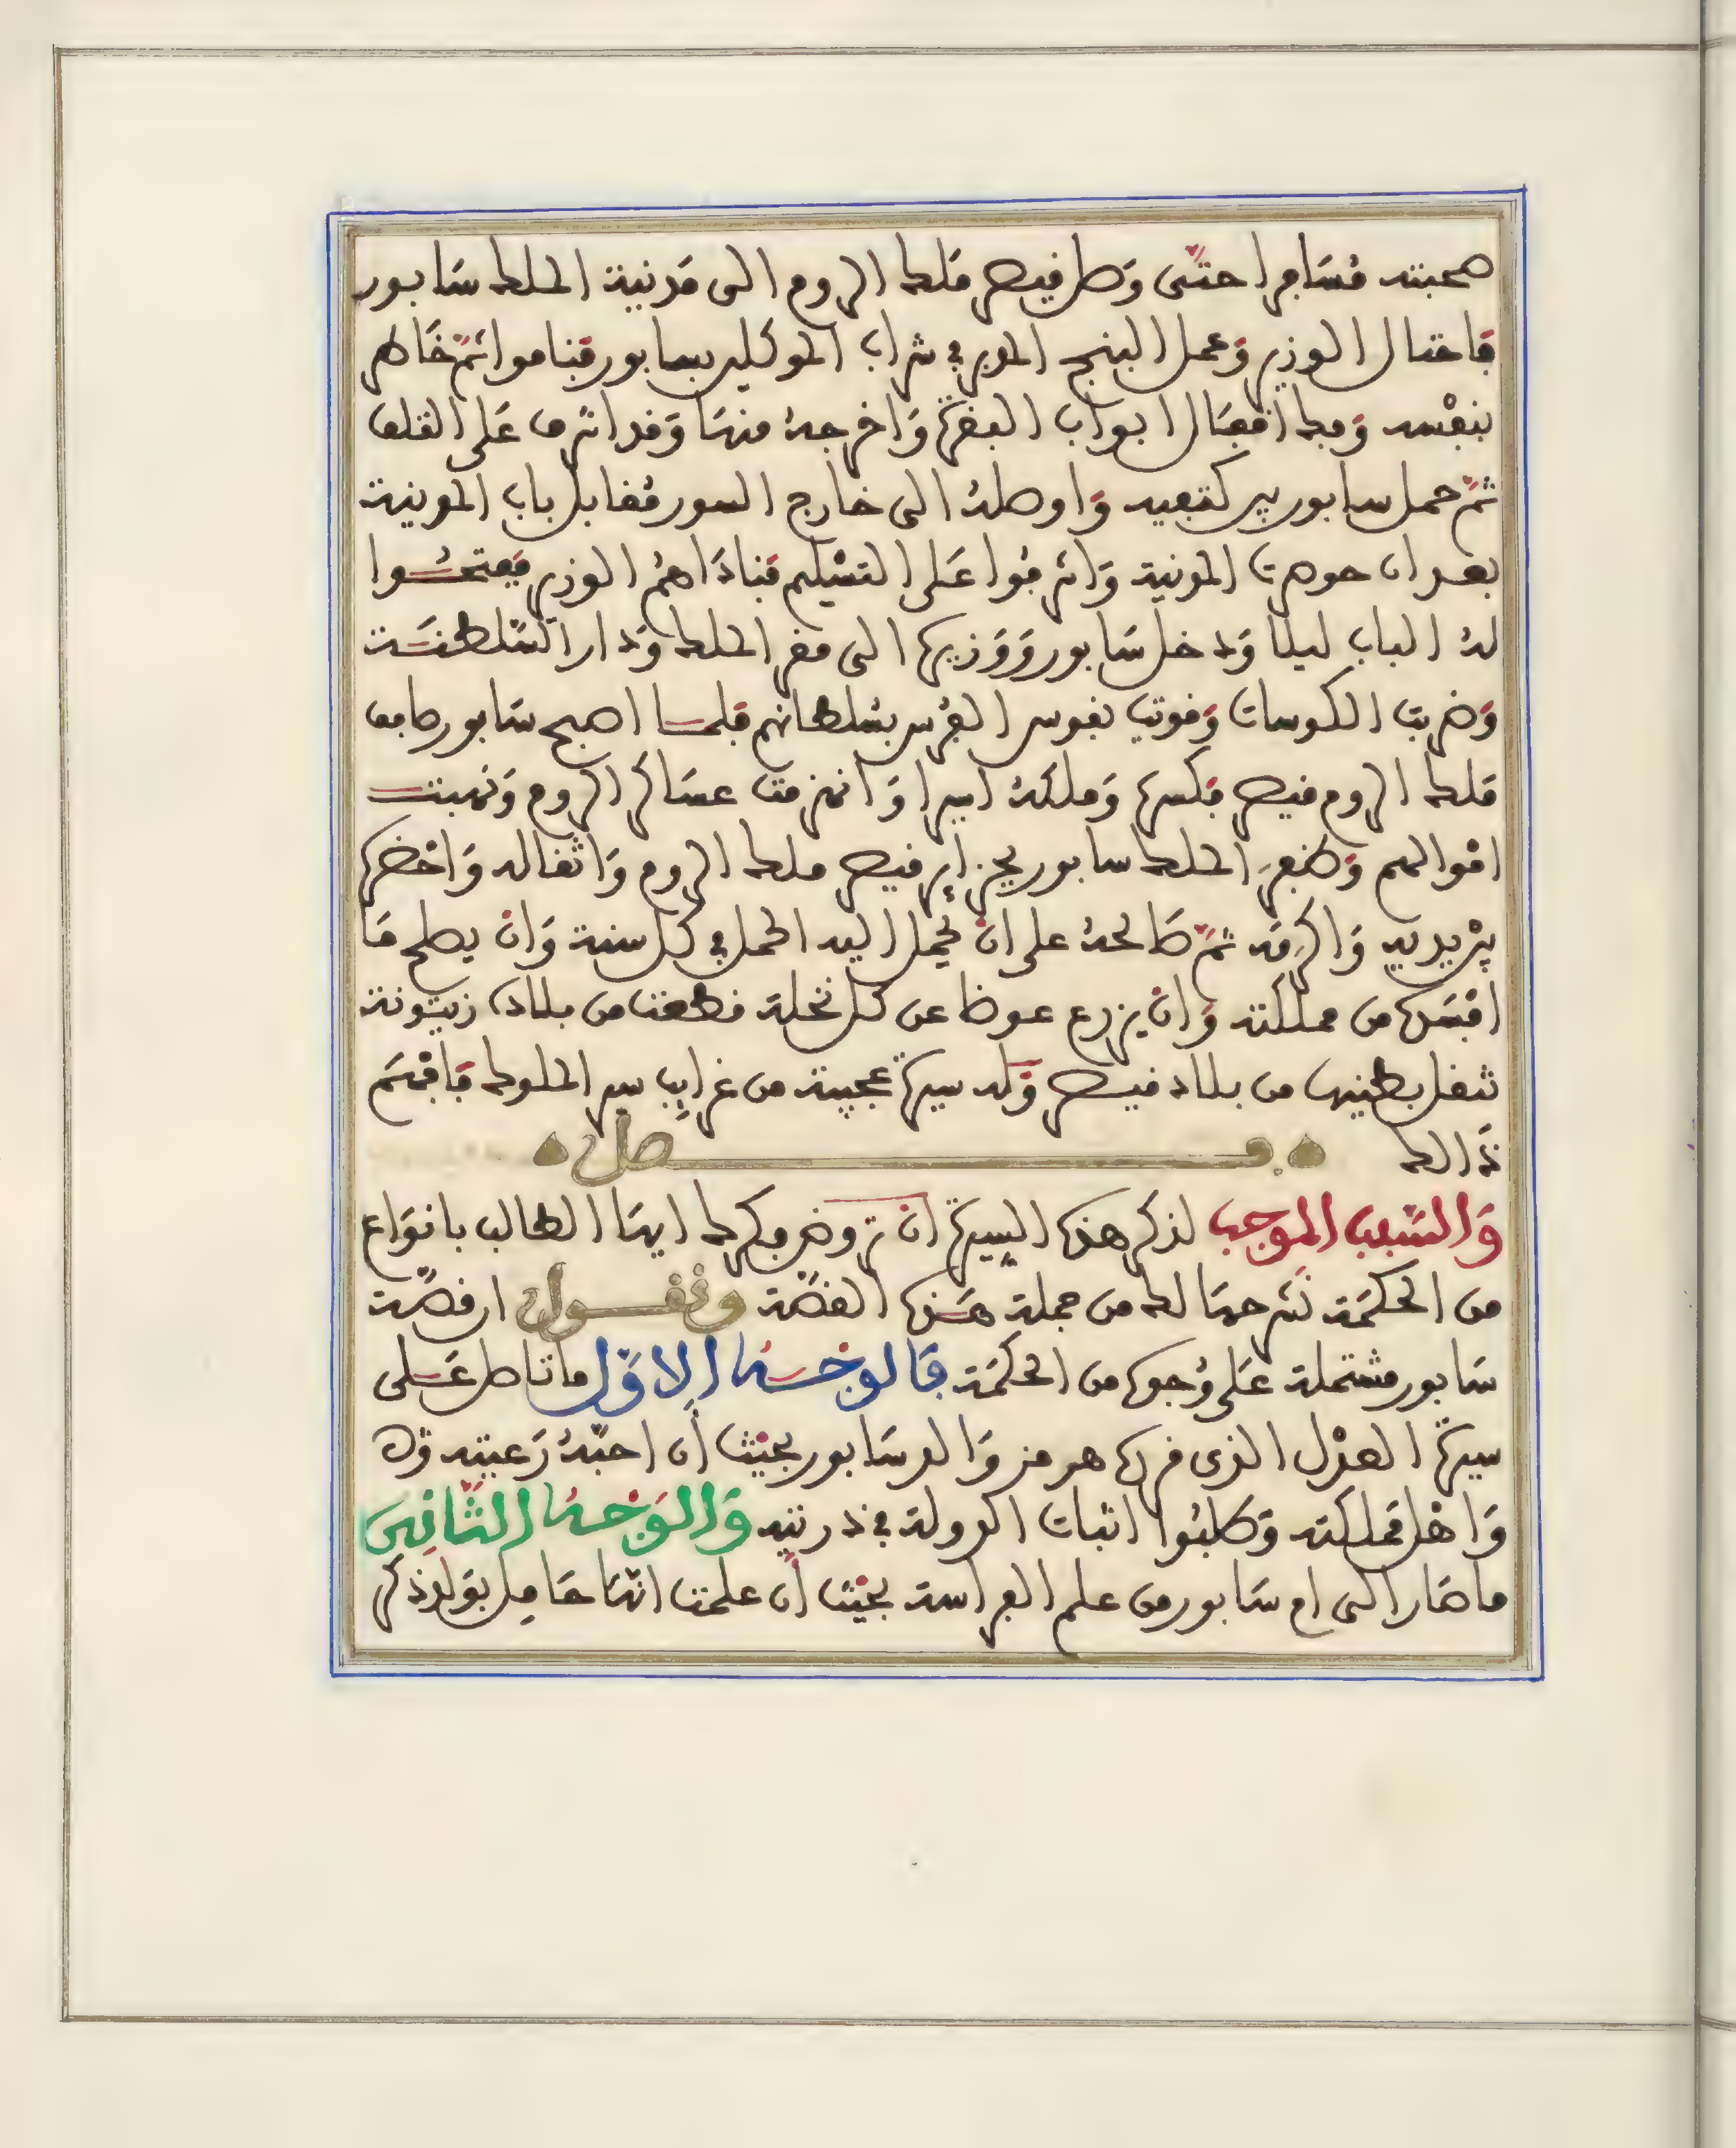 صحبته مُسَافرا حتّى وَصل قيصر مَلك الروم الى مَدينة الملك سَابور
فاحتال الوزير وَعمل البنج المدبر في شراب الموكلين بسابور فناموا ثمّ خَاطر
بنفْسه وَفك اقفَال ابواب البقرة وَاخرجهُ منهَا وَقد اشرف عَلى التلف
ثمّ حمل سابور بين كتفيه وَاوصلهُ الى خارج السور مُقابل باب المدينة
بعد ان حوصرت المدينة وَاشرفُوا عَلى التسْليم فنادَاهمُ الوزير ففتحُـوا
لهُ الباب ليلا وَدخل سَابور وَوَزيره الى مقر الملك وَدار السّلطنَـة
وَضربت الكوسات وَقويت نفوس الفُرس بسُلطانهم فلمـا اصبح سَابور صَافف
مَلك الروم قيصر فكسره وَملكهُ اسيرا وَانهزمت عسَاكر الروم وَنهبت
امْوالهم وَظفر الملك سابور بجزاير قيصر ملك الروم وَاثقاله وَاحْضره
بيْن يديه وَاكرمَه ثمّ صَالحهُ على انْ يحمل اليه الحمل في كل سنة وَانْ يصلح مَا
افسَده من مملكته وَانْ يزرع عوضا عن كل نخلة قطعت من بلاده زيتونة
تنقل بطينها من بلاد قيصر وَله سيرة عجيبة من غرايب سير الملوك فافْهَم
ذَالك فـصل
وَالسّبب الموجب لذكر هذه السيرة ان تروض فكرك ايهَا الطالب بانوَاع
من الحكمَة نَشرحهَا لك من جملة هَـذه القصّة ونقـول ان قصّة
سَابور مشتملة عَلى وُجوه من الحكمَة فَالوجْـهُ الاوّل ما تاصل عَـلى
سيرة العدْل الذي قرره هرمز وَالد سَابور بحيْث أن احبّهُ رَعيته
وَاهْل مَملكته وَطلبُوا اثبات الدولة في ذريته وَالوَجْـهُ الثّانِي
ما صَار الى ام سَابور من علم الفراسة بحيْث أن علمت انّهَا حَامِل بوَلد ذكر